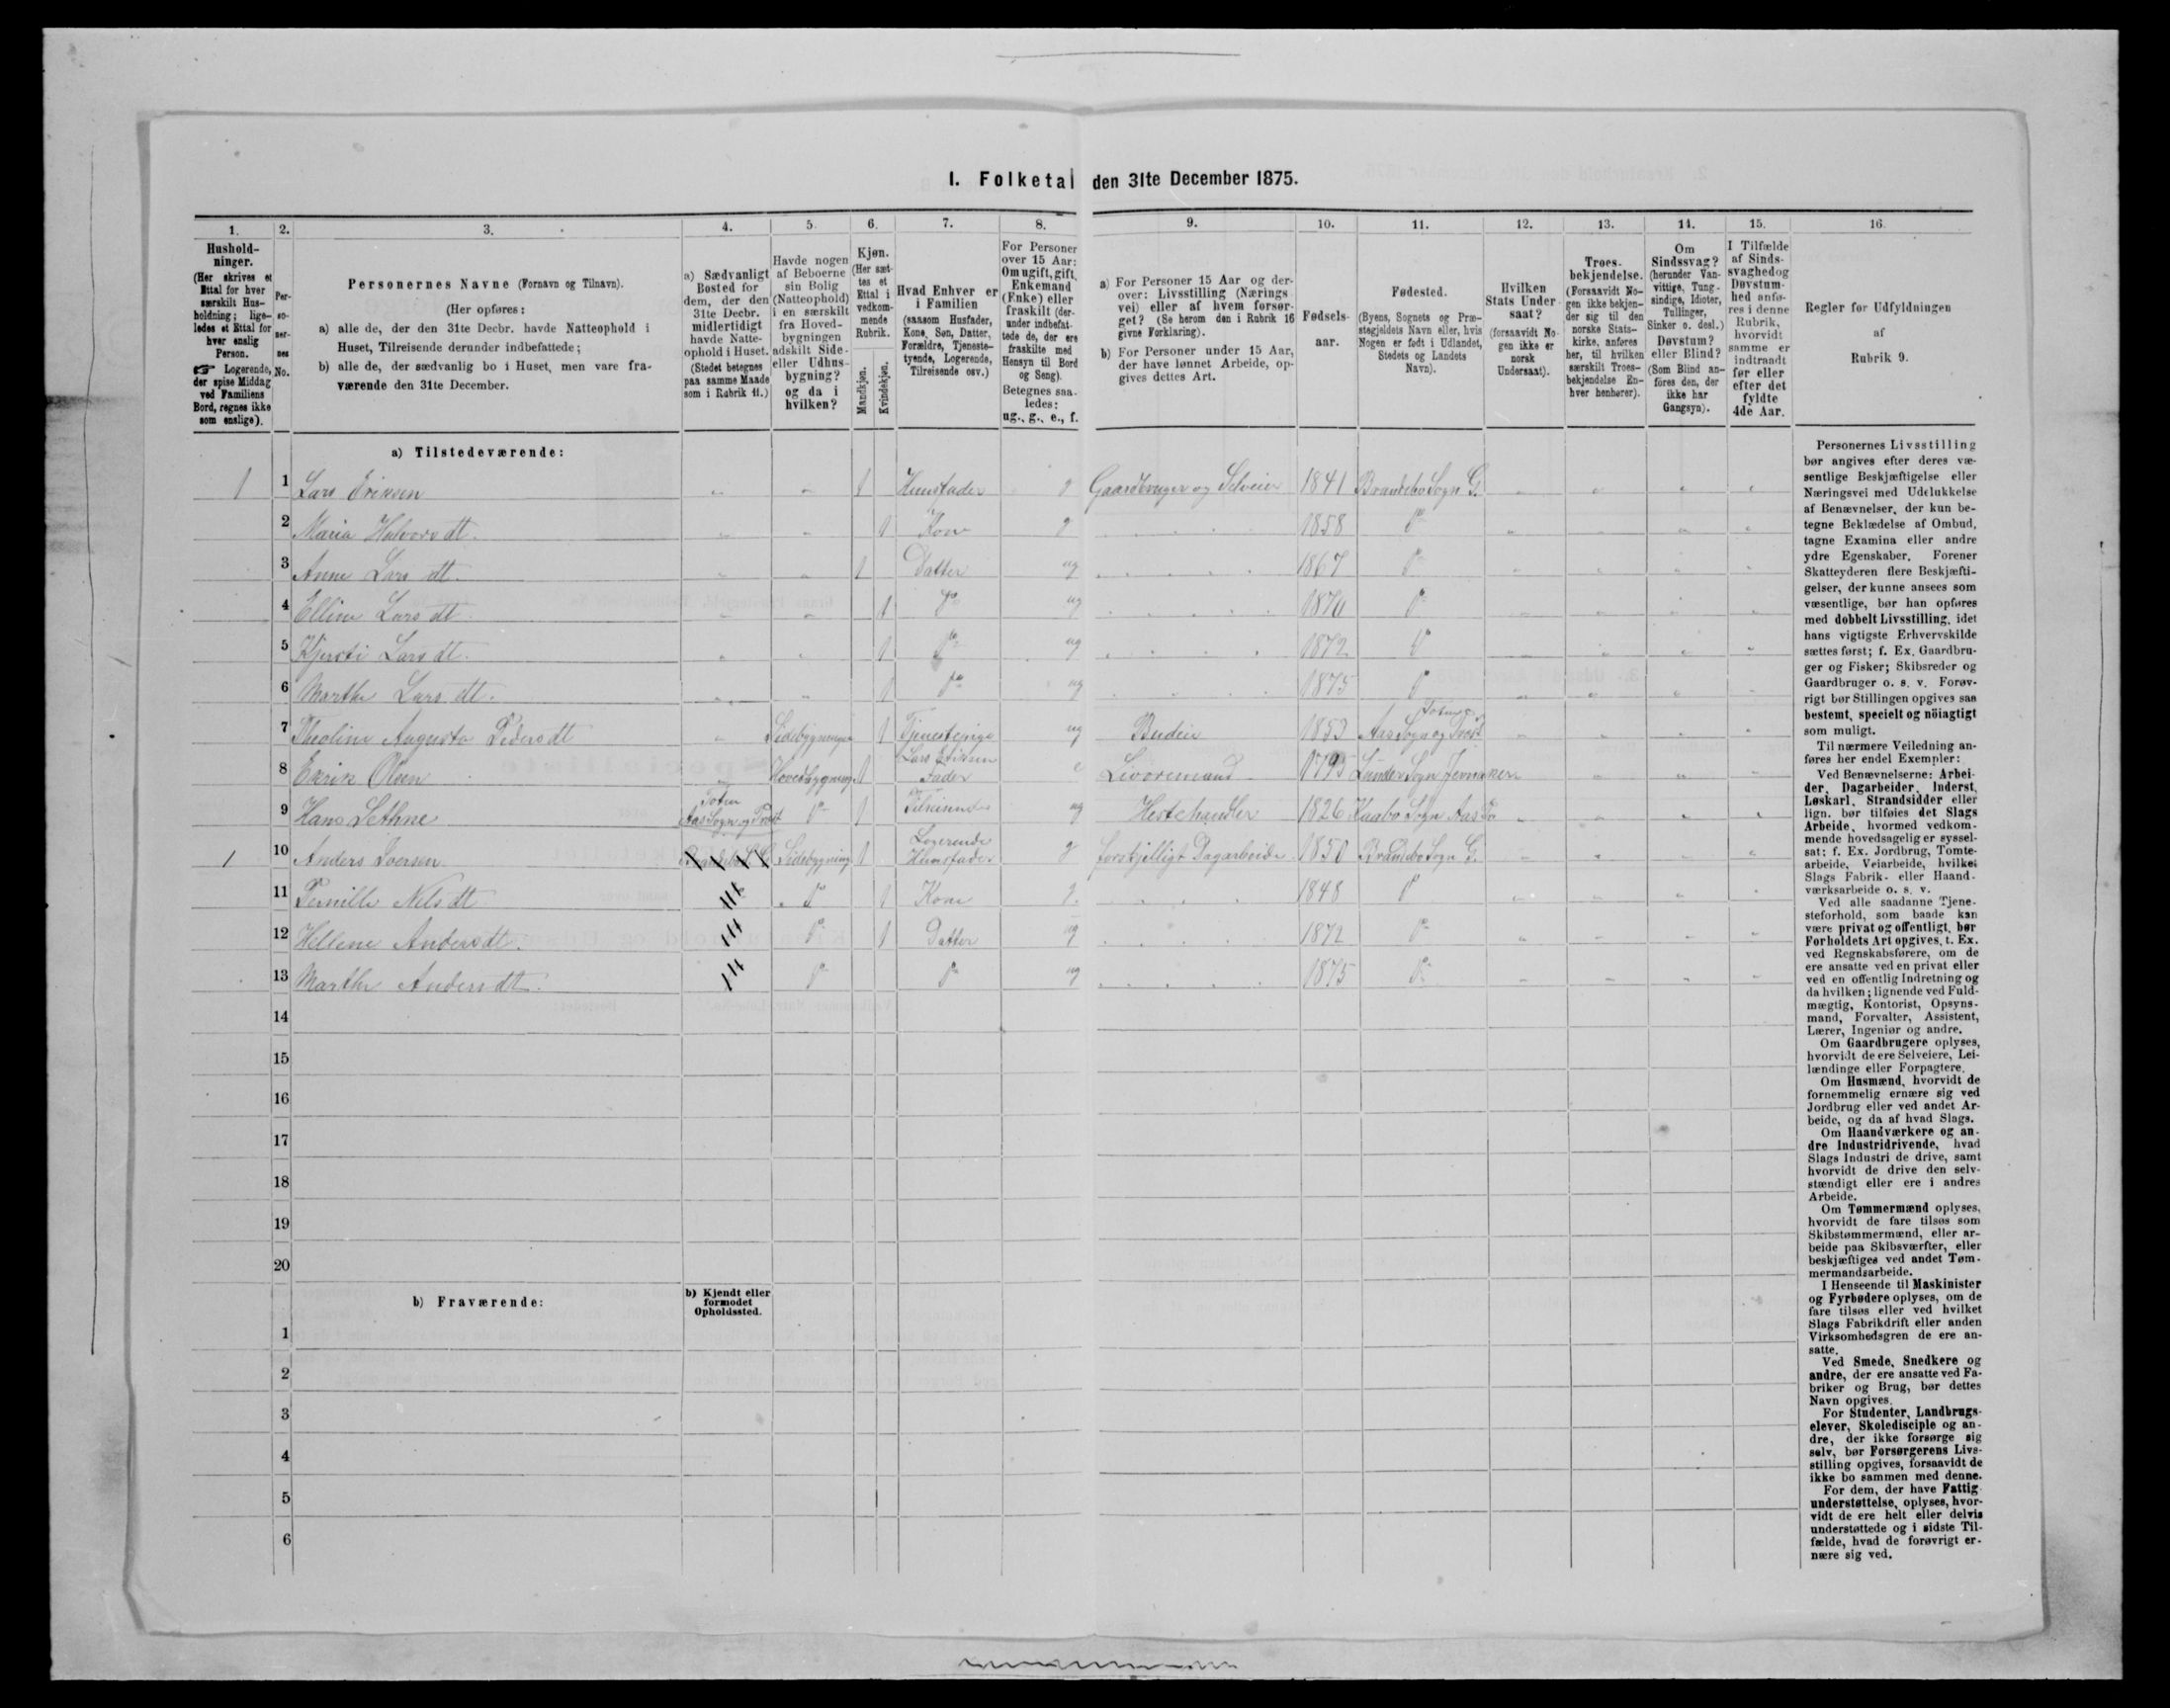 I. Folketal den 31te December 1875.
1.
Hushold-
ninger.
(Her skrives et
Ettal for hver
særskilt Hus-
holdning; lige-
ledes et Ettal for
hver enslig
Person.
☞ Logerende,
der spise Middag
ved Familiens
Bord, regnes ikke
som enslige).
2.
Per-
so-
ner-
nes
No.
3.
Personernes Navne (Fornavn og Tilnavn).
(Her opføres:
a) alle de, der den 31te Decbr. havde Natteophold i
Huset, Tilreisende derunder indbefattede;
b) alle de, der sædvanlig bo i Huset, men vare fra-
værende den 31te December.
4.
a) Sædvanligt
Bosted for
dem, der den
31te Decbr.
midlertidigt
havde Natte-
ophold i Huset.
(Stedet betegnes
paa samme Maade
som i Rubrik 11.)
5.
Havde nogen
af Beboerne
sin Bolig
(Natteophold)
i en særskilt
fra Hoved-
bygningen
adskilt Side-
eller Udhus-
bygning?
og da i
hvilken?
6.
Kjøn.
(Her sæt-
tes et
Ettal i
vedkom-
mende
Rubrik.
Mandkjøn.
Kvindekjøn.
7.
Hvad Enhver er
i Familien
(saasom Husfader,
Kone, Søn, Datter,
Forældre, Tjeneste-
tyende, Logerende,
Tilreisende osv.)
8.
For Personer
over 15 Aar:
Om ugift, gift,
Enkemand
(Enke) eller
fraskilt (der-
under indbefat-
tede de, der ere
fraskilte med
Hensyn til Bord
og Seng).
Betegnes saa-
ledes:
ug., g., e., f.
9.
a) For Personer 15 Aar og der-
over: Livsstilling (Nærings
vei) eller af hvem forsør-
get? (Se herom den i Rubrik 16
givne Forklaring).
b) For Personer under 15 Aar,
der have lønnet Arbeide, op-
gives dettes Art.
10.
Fødsels-
aar.
11.
Fødested.
(Byens, Sognets og Præ-
stegjeldets Navn eller, hvis
Nogen er født i Udlandet,
Stedets og Landets
Navn).
12.
Hvilken
Stats Under
saat?
(forsaavidt No-
gen ikke er
norsk
Undersaat).
13.
Troes-
bekjendelse.
(Forsaavidt No-
gen ikke bekjen-
der sig til den
norske Stats-
kirke, anføres
her, til hvilken
særskilt Troes-
bekjendelse En-
hver henhører).
14.
Om
Sindssvag?
(herunder Van-
vittige, Tung-
sindige, Idioter,
Tullinger,
Sinker o. desl.)
Døvstum?
eller Blind?
(Som Blind an-
føres den, der
ikke har
Gangsyn).
15.
I Tilfælde
af Sinds-
svaghed og
Døvstum-
hed anfø-
res i denne
Rubrik,
hvorvidt
samme er
indtraadt
før eller
efter det
fyldte
4de Aar.
16.
Regler for Udfyldningen
af
Rubrik 9.
a) Tilstedeværende:
1 1 Lars Eriksen 1 Huusfader g Gaardbruger og Selveier 1841 Brandebo Sogn G.
2 Maria Halvorsdt. 1 Kone g 1858 Do
3 Anne Larsdt. 1 Datter ug 1867 Do
4 Elline Larsdt. 1 Do ug 1870 Do
5 Kjersti Larsdt. 1 Do ug 1872 Do
6 Marthe Larsdt. 1 Do ug 1875 Do
7 Theoline Augusta Pedersdt Sidebygningen 1 Tjenestepige ug Budeie 1853 Aas Sogn og Toten
8 Eerik Olsen Hovedbygning 1 Lars Eriksen Fader e 1795 Lunder Sogn Jevnaker
9 Hans Lethne Toten Aas Sogn og Do 1 ug Hestehandler 1826 Sogn Aas
1 10 Anders Iversen Sidebygning 1 Logerende Huusfader g forskjelligt Dagarbeide 1850 Brandebo Sogn G.
11 Pernille Nelsdt Do 1 Kone g. 1848 Do
12 Hellene Andersdt. Do 1 Datter ug 1872 Do
13 Marthe Andersdt. Do Do ug 1875 Do
14
15
16
17
18
19
20
b) Fraværende:
b) Kjendt eller
formodet
Opholdssted.
1
2
3
4
5
6
Personernes Livsstilling
bør angives efter deres væ-
sentlige Beskjæftigelse eller
Næringsvei med Udelukkelse
af Benævnelser, der kun be-
tegne Beklædelse af Ombud,
tagne Examina eller andre
ydre Egenskaber. Forener
Skatteyderen flere Beskjæfti-
gelser, der kunne ansees som
væsentlige, bør han opføres
med dobbelt Livsstilling, idet
hans vigtigste Erhvervskilde
sættes først; f. Ex. Gaardbru-
ger og Fisker; Skibsreder og
Gaardbruger o. s. v. Forøv-
rigt bør Stillingen opgives saa
bestemt, specielt og nöiagtigt
som muligt.
Til nærmere Veiledning an-
føres her endel Exempler:
Ved Benævnelserne: Arbei-
der, Dagarbeider, Inderst,
Løskarl, Strandsidder eller
lign. bør tilføies det Slags
Arbeide, hvormed vedkom-
mende hovedsagelig er syssel-
sat; f. Ex. Jordbrug, Tomte-
arbeide, Veiarbeide, hvilket
Slags Fabrik- eller Haand-
værksarbeide o. s. v.
Ved alle saadanne Tjene-
steforhold, som baade kan
være privat og offentligt, bør
Forholdets Art opgives, t. Ex.
ved Regnskabsførere, om de
ere ansatte ved en privat eller
ved en offentlig Indretning og
da hvilken; lignende ved Fuld-
mægtig, Kontorist, Opsyns-
mand, Forvalter, Assistent,
Lærer, Ingeniør og andre.
Om Gaardbrugere oplyses,
hvorvidt de ere Selveiere, Lei-
lændinge eller Forpagtere.
Om Husmænd, hvorvidt de
fornemmelig ernære sig ved
Jordbrug eller ved andet Ar-
beide, og da af hvad Slags.
Om Haandværkere og an-
dre Industridrivende, hvad
Slags Industri de drive, samt
hvorvidt de drive den selv-
stændigt eller ere i andres
Arbeide.
Om Tømmermænd oplyses,
hvorvidt de fare tilsøs som
Skibstømmermænd, eller ar-
beide paa Skibsværfter, eller
beskjæftiges ved andet Tøm-
mermandsarbeide.
I Henseende til Maskinister
og Fyrbødere oplyses, om de
fare tilsøs eller ved hvilket
Slags Fabrikdrift eller anden
Virksomhedsgren de ere an-
satte.
Ved Smede, Snedkere og
andre, der ere ansatte ved Fa-
briker og Brug, bør dettes
Navn opgives.
For Studenter, Landbrugs-
elever, Skoledisciple og an-
dre, der ikke forsørge sig
selv, bør Forsørgerens Livs-
stilling opgives, forsaavidt de
ikke bo sammen med denne.
For dem, der have Fattig-
understøttelse, oplyses, hvor-
vidt de ere helt eller delvis
understøttede og i sidste Til-
fælde, hvad de forøvrigt er-
nære sig ved.